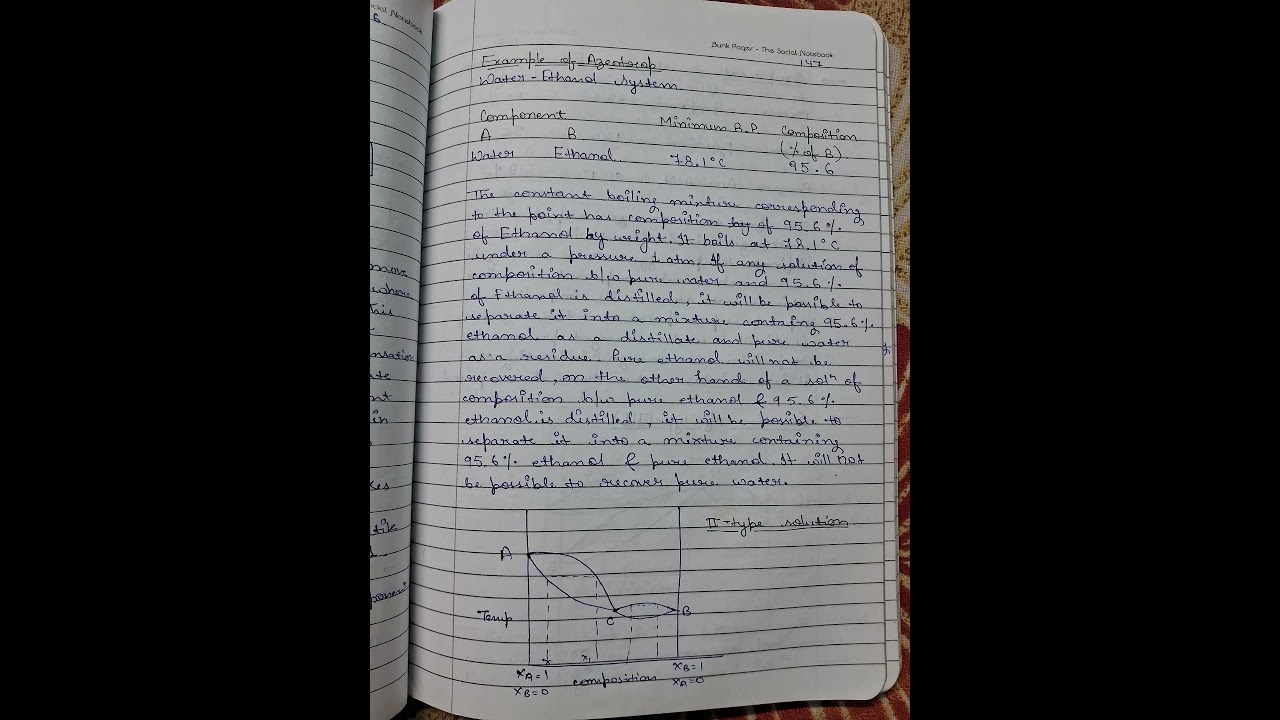 ocial Notebook
6
Bunk Pages - The Social Notebook
147
Example of Azeotrop
Water - Ethanol System
Component Minimum B.P. Composition
A B (% of B)
Water Ethanol 78.1°C 95.6
The constant boiling mixture corresponding
to the point has composition by of 95.6%
of Ethanol by weight. It boils at 78.1°C
under a pressure 1 atm. If any solution of
composition b/w pure water and 95.6%
of Ethanol is distilled, it will be possible to
separate it into a mixture containg 95.6%
ethanol as a distillate and pure water
as a residue. Pure ethanol will not be
recovered, on the other hand of a solⁿ of
composition b/w pure ethanol & 95.6%
ethanol is distilled, it will be possible to
separate it into a mixture containing
95.6% ethanol & pure ethanol. It will not
be possible to recover pure water.
II-type solution
A
Temp
C
B
x x₁
xA=1 xB=1
xB=0 composition xA=0